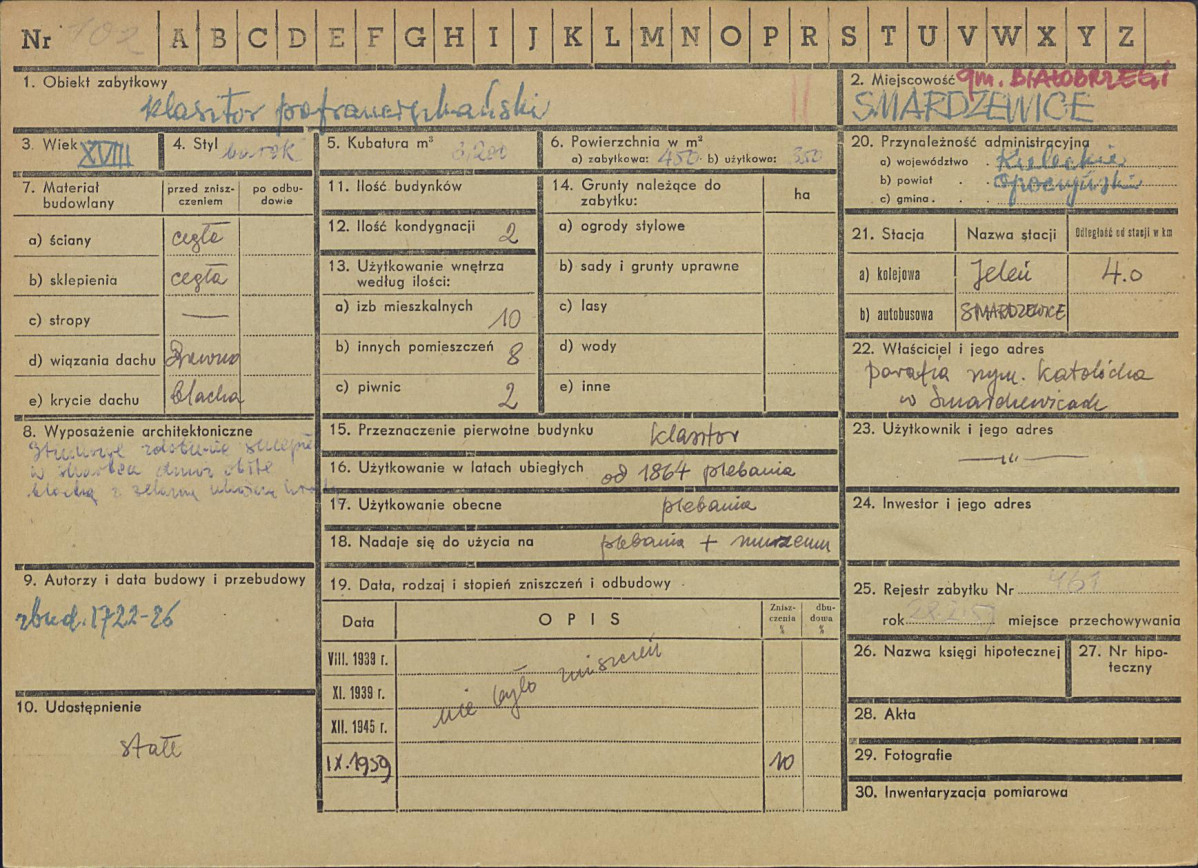 Nr 102 A B C D E F G H I J K L M N O P R S T U V W X Y Z
1. Obiekt zabytkowy
klasztor pofranciszkański
II
2. Miejscowość gm. BIAŁOBRZEGI
SMARDZEWICE
3. Wiek XVIII
4. Styl barok
5. Kubatura m³ 3,200
6. Powierzchnia w m²
a) zabytkowa: 450 b) użytkowa: 350
7. Materiał budowlany
przed znisz-
czeniem
po odbu-
dowie
a) ściany cegła
b) sklepienia cegła
c) stropy —
d) wiązania dachu Drewno
e) krycie dachu blacha
8. Wyposażenie architektoniczne
w skarbcu drzwi obite
blachą z żelazną
9. Autorzy i data budowy i przebudowy
zbud. 1722-26
10. Udostępnienie
stałe
11. Ilość budynków
12. Ilość kondygnacji 2
13. Użytkowanie wnętrza
według ilości:
a) izb mieszkalnych 10
b) innych pomieszczeń 8
c) piwnic 2
14. Grunty należące do
zabytku:
ha
a) ogrody stylowe
b) sady i grunty uprawne
c) lasy
d) wody
e) inne
15. Przeznaczenie pierwotne budynku klasztor
16. Użytkowanie w latach ubiegłych od 1864 plebania
17. Użytkowanie obecne plebania
18. Nadaje się do użycia na plebania + muzeum
19. Data, rodzaj i stopień zniszczeń i odbudowy
Data
OPIS
Znisz-
czenia
%
dbu-
dowa
%
VIII. 1939 r.
XI. 1939 r.
XII. 1945 r.
nie było zniszczeń
IX. 1959 10
20. Przynależność administracyjna
a) województwo . Kieleckie
b) powiat . . opoczyński
c) gmina . . .
21. Stacja
Nazwa stacji
Odległość od stacji w km
a) kolejowa Jeleń 4.0
b) autobusowa SMARDZEWICE
22. Właściciel i jego adres
parafia rzym. katolicka
w Smardzewicach
23. Użytkownik i jego adres
— „ —
24. Inwestor i jego adres
25. Rejestr zabytku Nr 461
rok miejsce przechowywania
26. Nazwa księgi hipotecznej
27. Nr hipo-
teczny
28. Akta
29. Fotografie
30. Inwentaryzacja pomiarowa